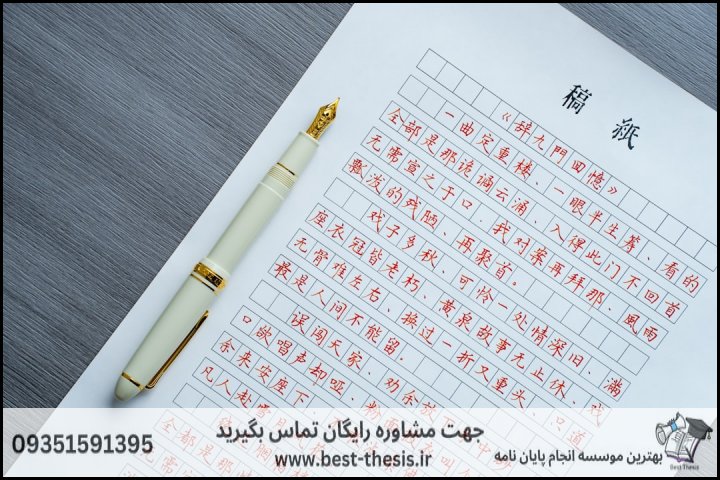 稿紙
《辞九門回憶》
一曲定重楼、一眼半生筹、看的
全部是那诡谲云涌、入得此门不回首
无需宣之于口、我对案再拜那、風雨
飘泼的残陋、再聚首。
戏子多秋、可怜一处情深旧、滿
座衣冠皆老朽、黄泉故事无止休、戏
无骨难左右、换过一折又重头、只道
最是人间不能留。
误闯天家、劝余放
口欲唱声却哑、
余来安座下
凡人赴
جهت مشاوره رایگان تماس بگیرید
09351591395
www.best-thesis.ir
بهترین موسسه انجام پایان نامه
Best Thesis